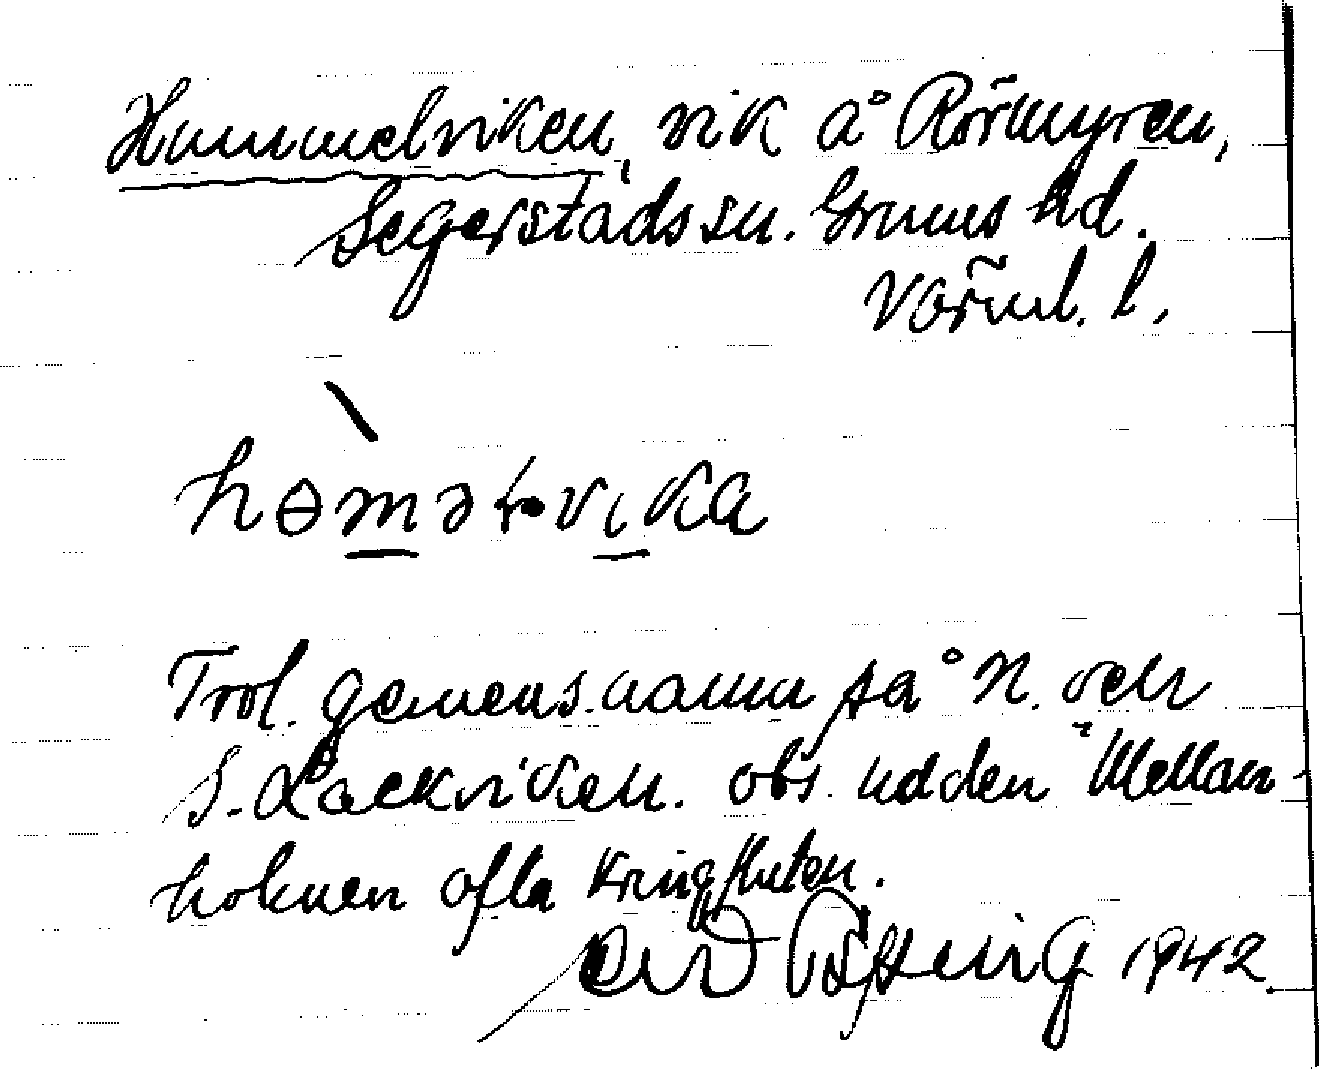 Hummelviken, vik å Rörmyren,
Segerstads sn. Grums hd.
Värml. l.
hɵməɫvɩka
Trol. gemens. namn på N. och
S. Lackviken. obs. udden Mellan-
holmen ofta kringfluten.
1942.